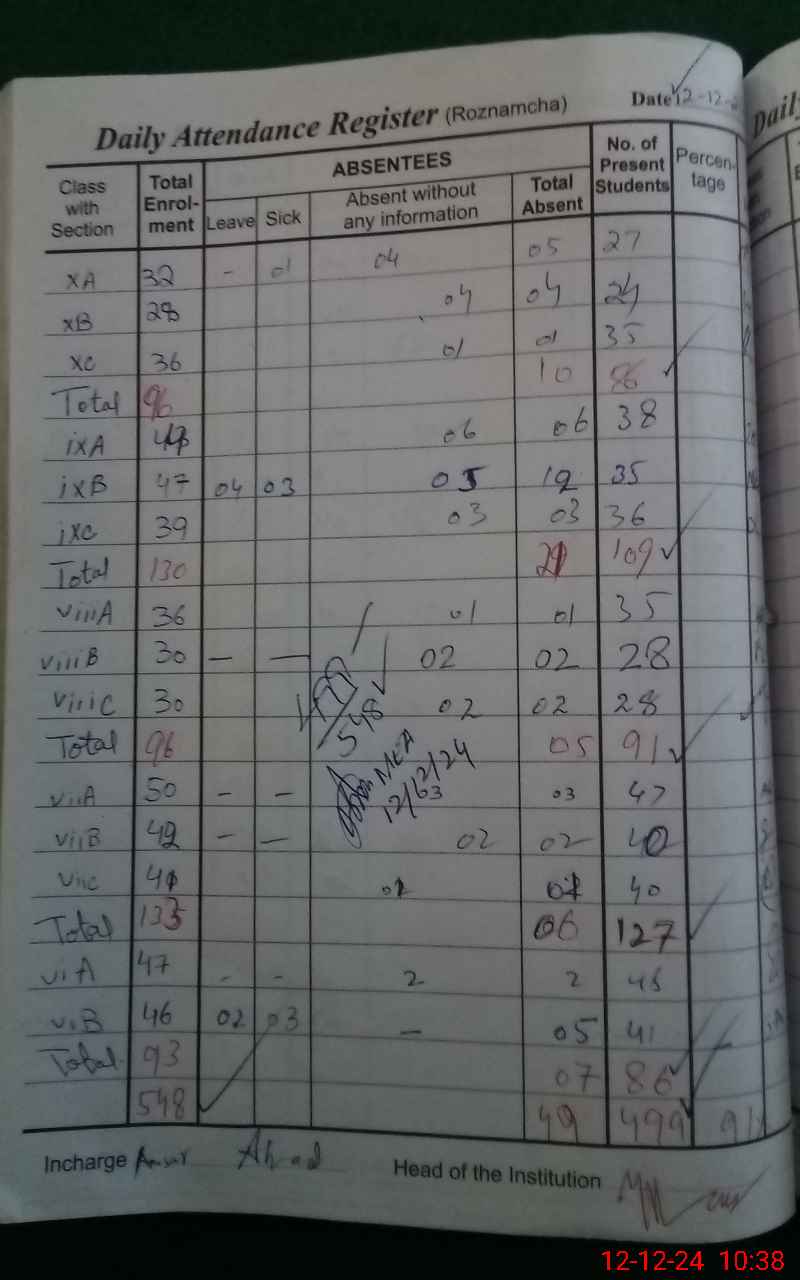 Daily Attendance Register (Roznamcha) Date 12-12-
Class with Section Total Enrol-ment ABSENTEES No. of Present Students Percen-tage
Leave Sick Absent without any information Total Absent
xA 32 - 01 04 05 27
xB 28 04 04 24
xc 36 01 01 35
Total 96 10 86
ixA 44 06 06 38
ixB 47 04 03 05 12 35
ixc 39 03 03 36
Total 130 21 109
viiiA 36 01 01 35
viiiB 30 - - 02 02 28
viiiC 30 02 02 28
548
Total 96 05 91
MEA
12/12/24
viiA 50 - - 03 03 47
viiB 42 - - 02 02 40
viic 41 01 01 40
Total 133 06 127
viA 47 - - 2 2 45
viB 46 02 03 - 05 41
Total 93 07 86
548 49 499 91%
Incharge Ahad Head of the Institution
Daily
12-12-24 10:38